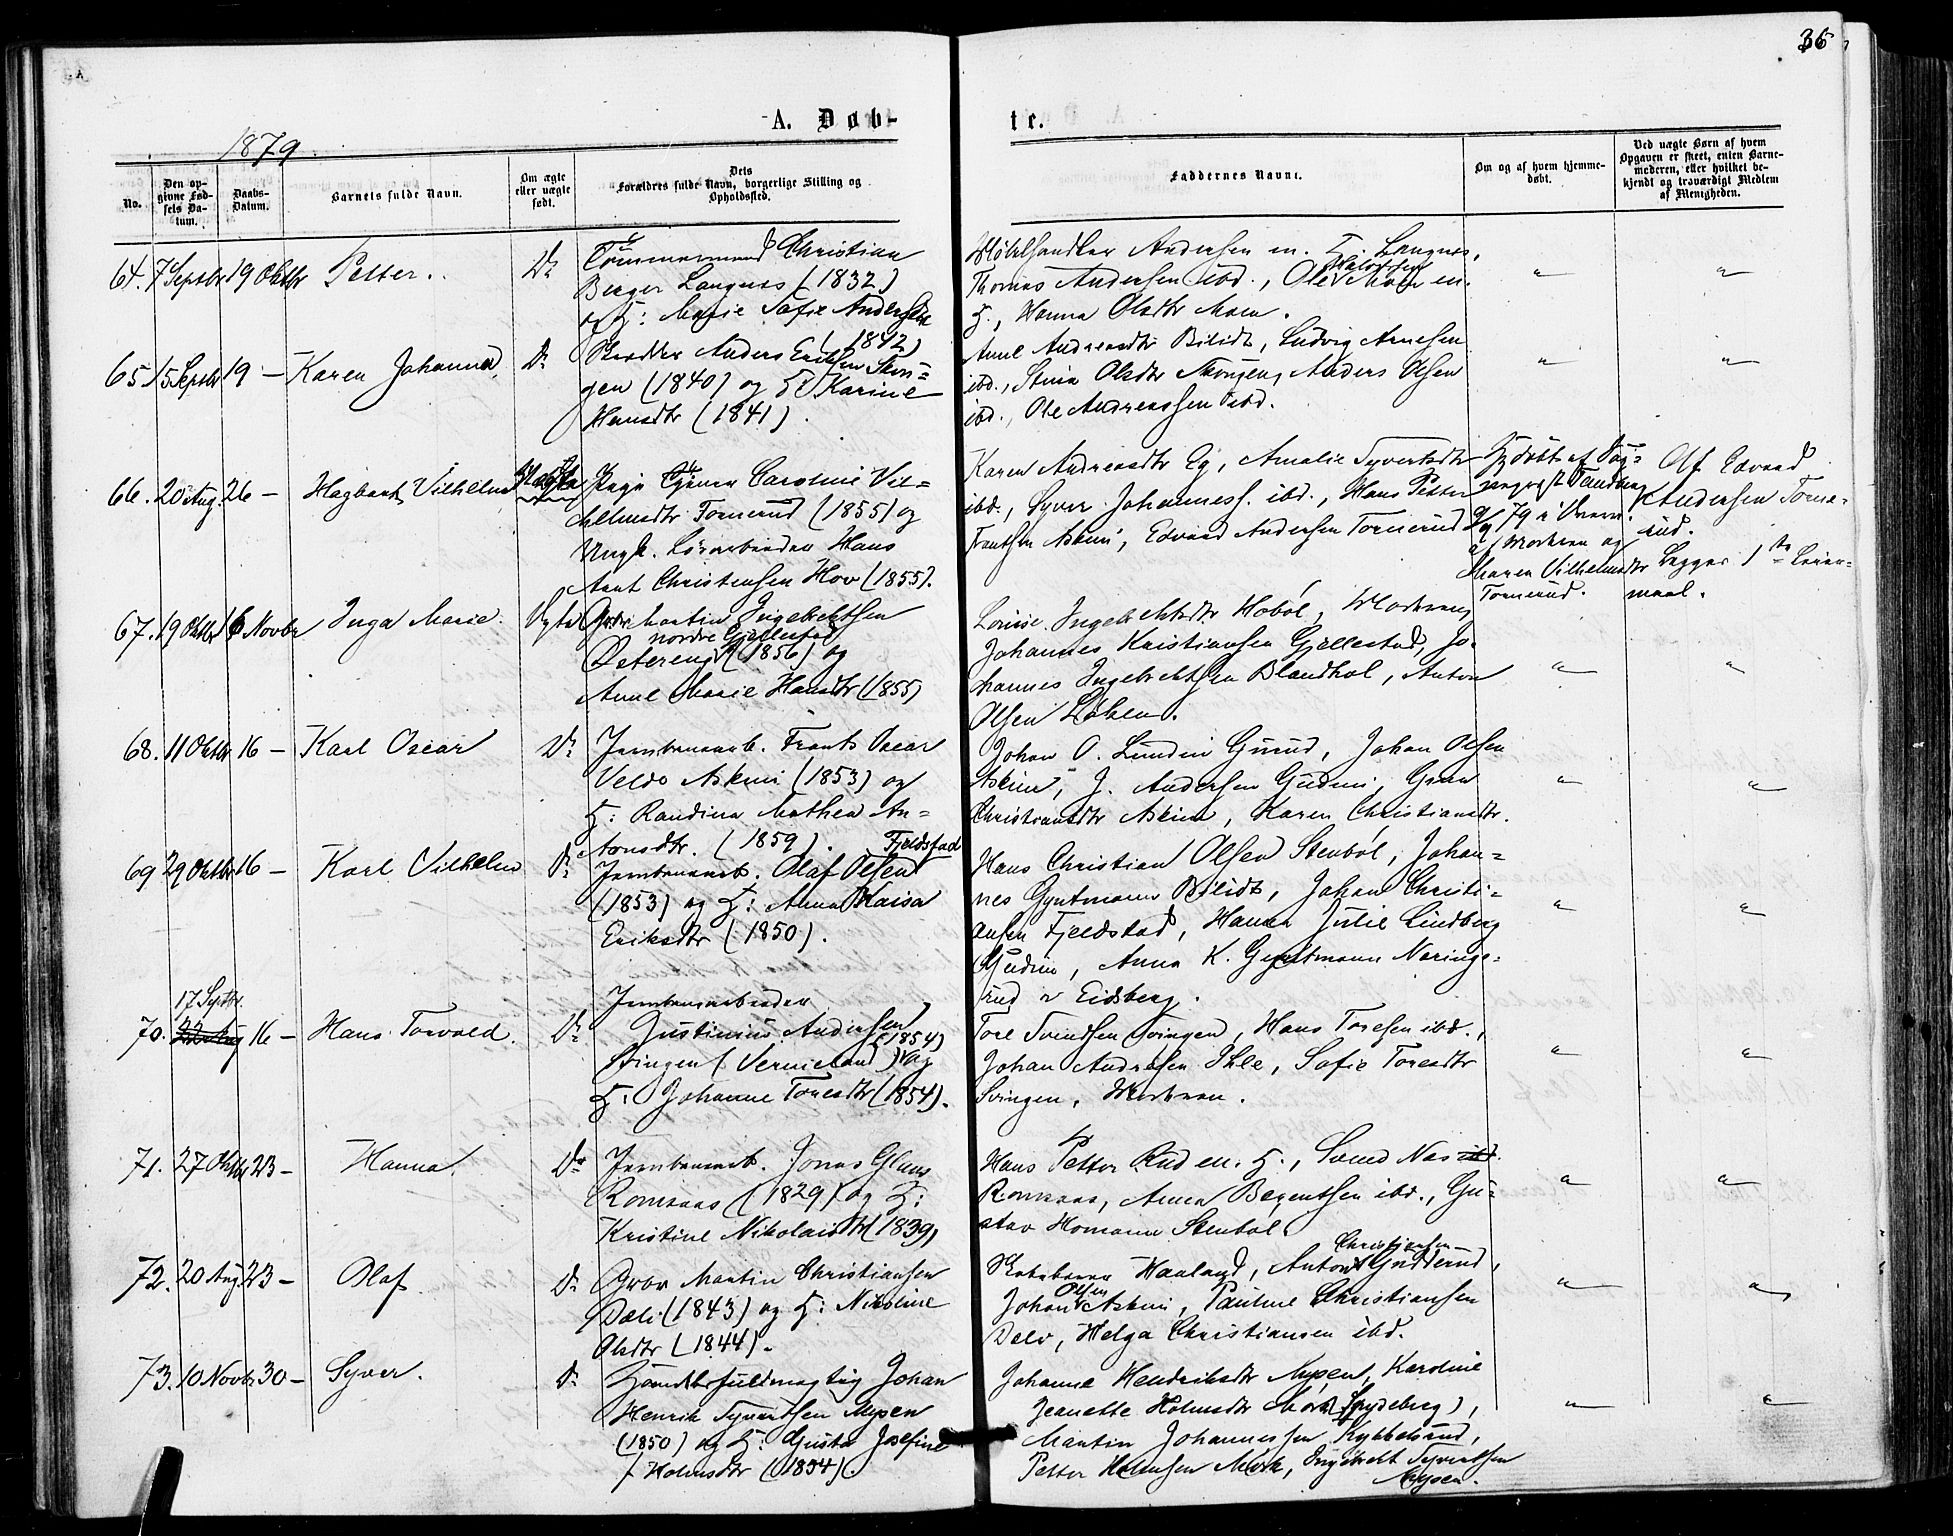 36
A. Døb-
te.
1879.
No.
Den op-
givne Fød-
sels Da-
tum.
Daabs-
Datum.
Barnets fulde Navn.
Om ægte
eller uægte
født.
Dets
Forældres fulde Navn, borgerlige Stilling og
Opholdssted.
Faddernes Navne.
Om og af hvem hjemme-
døbt.
Ved uægte Børn af hvem
Opgaven er skeet, enten Barne-
moderen, eller hvilket be-
kjendt og troværdigt Medlem
af Menigheden.
64. 7 Septbr 19 Oktbr Petter. Do
Tømmermand Christian
Berger Langnes (1832)
og H: Marie Sofie Andersdtr
(1842)
Andersen m. H. Langnes,
Thomas Andersen ibd., Ole Halvorsen Moen m.
H., Hanna Olsdtr Moen.
65. 15 Septbr 19 – Karen Johanna. Do
Anders Eriksen Skon-
gen (1840) og H: Karine
Hansdtr (1841).
Anne Andreasdtr Bilidt, Ludvig Arnesen
ibd., Stina Olsdtr Skongen, Anders Olsen
ibd., Ole Andreassen ibd.
66. 20 Aug. 26 – Hagbart Vilhelm Uægte
Pige Caroline Vil-
helmsdtr Tornerud (1855) og
Ungk. Hans
Arnt Christensen Hov (1855).
Karen Andreasdtr Eg, Amalie Syvertsdtr
ibd., Syver Johanness. ibd., Hans Petter
Frantsen Askim, Edvard Andersen Tornerud
Hjdøbt af
79 i
af Moderen og
Maren Vilhelmsdtr
Tornerud.
Af Edvard
Andersen Torne-
rud.
Begges 1ste Leier-
maal.
67. 19 Oktbr 16 Novbr Inga Marie. Ægte
Martin Ingebrethsen
nordre Gjellestad
Østereng (1856) og
Anne Marie Hansdtr (1855)
Louise Ingebrethsdtr Hobøl, Moderen,
Johannes Kristiansen Gjellestad, Jo-
hannes Ingebrethsen Blandhol, Anton
Olsen Løken.
68. 11 Oktbr 16 – Karl Oscar Do
Jernbanearb. Frants Oscar
Veldo Askim (1853) og
H: Randina Mathea An-
tonsdtr. (1859).
Johan O. Lundin Gurud, Johan Olsen
Askim, J. Andersen Gudim, Gran
Christiansdtr Askim, Karen Christiansdtr.
69 29 Oktbr 16 – Karl Vilhelm Do
Fjeldstad
Jernbanearb. Olaf Olsen
(1853) og H: Anna Kaisa
Eriksdtr (1850).
Hans Christian Olsen Stenbøl, Johan-
nes Gyntmann Bilidt, Johan Christi-
ansen Fjeldstad, Hanna Julie Lindberg
Gudim, Anna K. Gyntmann Naringe-
rud i Eidsberg.
17 Septbr.
70. 22 Aug 16 – Hans Torvald. Do
Jernbanearbeider
Justinius Andersen
(1854)
Svingen (Vermeland) og
H: Johanne Toresdtr (1854).
Tore Svendsen Svingen, Hans Toresen ibd.,
Johan Andresen Ihle, Sofie Toresdtr
Svingen, Moderen.
71. 27 Oktbr 23 – Hanna. Do
Jernbanearb. Jonas Glans
Romsaas (1829) og H:
Kristine Nikolaisdtr (1839)
Hans Petter Rud m. H., Svend Næs ibd.
Romsaas, Anna Begentsen ibd., Gu-
stav Homann Stenbøl
72. 20 Aug 23 – Olaf. Do
Gbr Martin Christiansen
Dæli (1843) og H: Nikoline
Olsdtr (1844).
Haaland, Anton Christiansen Gudderud,
Johan Olsen Askim, Pauline Christiansen
Dele, Helga Christiansen ibd.
73. 10 Novbr 30 – Syver. Do
Handelsfuldmægtig Johan
Henrik Syvertsen Mysen
(1850) og H: Gusta Josefine
Holmsdtr (1854).
Johanna Hendriksdtr Mysen, Karoline
Jeanette Holmsdtr Mørk (Spydeberg),
Martin Johannessen Kykkelsrud,
Petter Holmsen Mørk, Ingebret Syvertsen
Mysen.